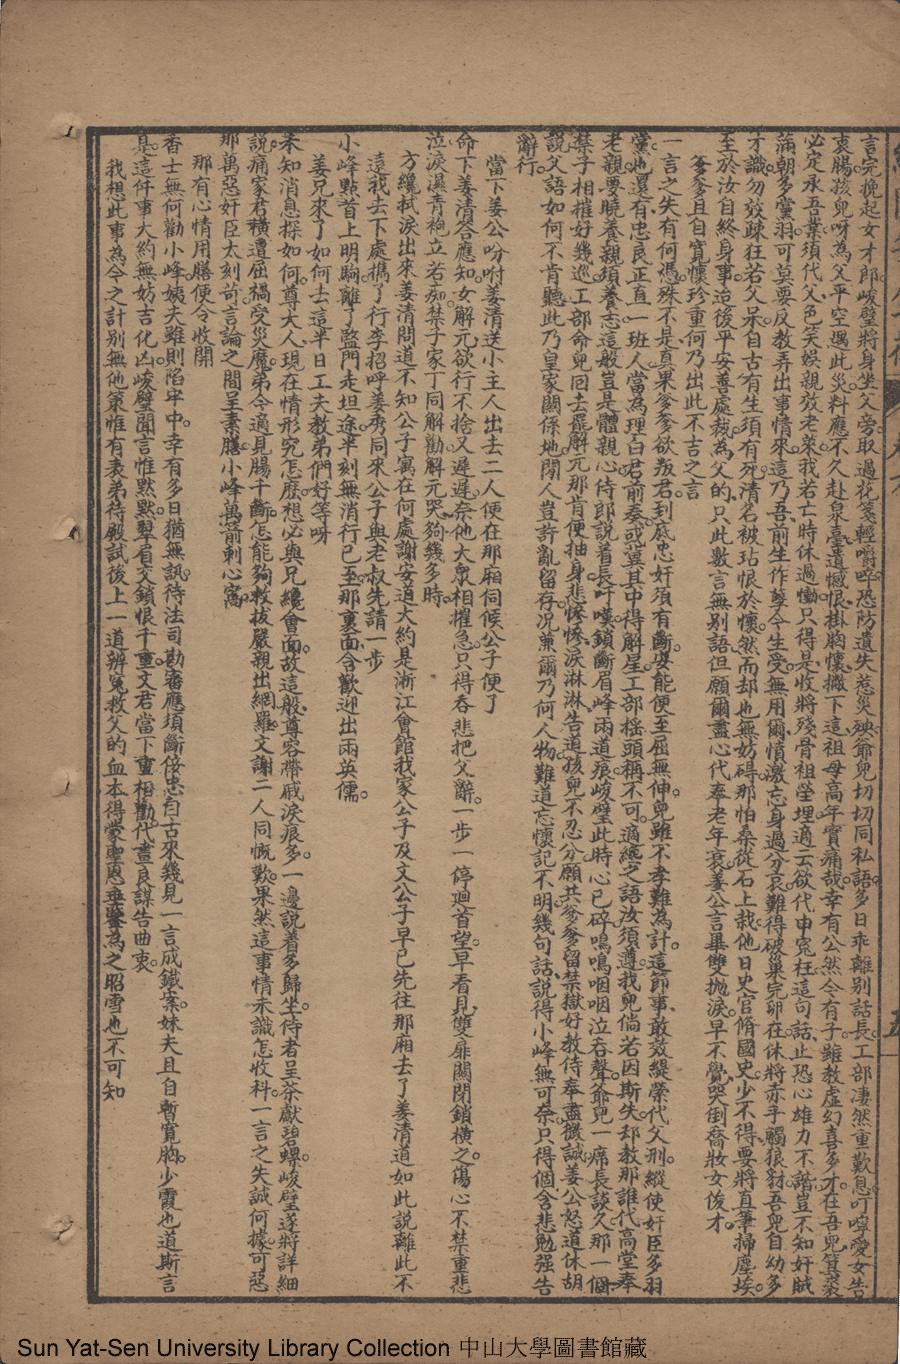 言完挽起女才郎峻璧將身坐父旁取過花箋輕嚼啐恐防遺失惹災殃爺兒切切同私語多日乖離別話長工部淒然重歎息叮嚀愛女告
衷腸孩兒呀為父平空遇此災料應不久赴泉臺遺憾恨掛胸懷撇下這祖母高年實痛哉幸有公然今有子雖教虛幻喜多才在吾兒箕裘
必定承吾業須代父色笑娛親效老萊我若亡時休過慟只得是收將殘骨祖塋埋適云欲代申寃枉這句話止恐心雄力不諧豈不知奸賊
滿朝多黨羽可莫要反教弄出事情來這乃吾前生作孽今生受無用爾憤激忘身過分哀難得破巢完卵在休將赤手觸狼豺吾兒自幼多
才識勿效疎狂若父呆自古有生須有死清名被玷恨於懷然而却也無妨碍那怕桑從石上栽他日史官脩國史少不得要將直筆掃塵埃
至於汝自終身事迨後平安善處裁為父的只此數言無別語但願爾盡心代奉老年衰姜公言畢雙拋淚早不覺哭倒喬妝女俊才
爹爹且自寬懷珍重何乃出此不吉之言
一言之失有何憑殊不是真果爹爹欲叛君到底忠奸須有斷安能便至屈無伸兒雖不孝難為計這節事敢效緹縈代父刑縱使奸臣多羽
黨也還有忠良正直一班人當為理白君前奏或冀其中得解星工部榣頭稱不可適纔之語汝須遵我兒倘若因斯失却教那誰代高堂奉
老親要曉養親須養志這般豈是體親心侍郎說着長吁嘆鎖斷眉峰兩道痕峻璧此時心已碎嗚嗚咽咽泣吞聲爺兒一席長談久那一個
禁子相摧好幾巡工部命兒回去罷解元那肯便抽身悲慘慘淚淋淋告道孩兒不忍分願共爹爹留禁獄好教侍奉盡微誠姜公怒道休胡
說父語如何不肯聽此乃皇家關係地閒人豈許亂留存况兼爾乃何人物難道忘懷記不明幾句話說得小峰無可奈只得個含悲勉强告
辭行
當下姜公吩咐姜清送小主人出去二人便在那廂伺候公子便了
命下姜清答應知女解元欲行不捨又遲遲奈他大衆相摧急只得吞悲把父辭一步一停廻首望早看見雙扉關閉鎖橫之傷心不禁重悲
泣淚濕青袍立若痴禁子家丁同解勸解元哭夠幾多時
方纔拭淚出來姜清問道不知公子寓在何處謝安道大約是浙江會館我家公子及文公子早已先往那廂去了姜清道如此說離此不
遠我去下處攜了行李招呼姜秀同來公子與老叔先請一步
小峰點首上明駒離了監門走坦途半刻無消行已至那裏面含歡迎出兩英儒
姜兄來了如何去這半日工夫教弟們好等呀
未知消息探如何尊大人現在情形究怎麽想必與兄纔會面故這般尊容帶戚淚痕多一邊說着多歸坐侍者呈茶獻碧螺峻璧遂將詳細
說痛家君橫遭屈禍受災魔弟今適見腸千斷怎能夠救拔嚴親出網羅文謝二人同慨歎果然這事情未識怎收科一言之失誠何據可惡
那萬惡奸臣太刻苛言論之間呈素膳小峰萬箭刺心窩
那有心情用膳便令收開
香士無何勸小峰姨夫雖則陷牢中幸有多日猶無訊待法司勘審應須斷侫忠自古來幾見一言成鐵案妹夫且自暫寬胸少霞也道斯言
是這件事大約無妨吉化凶峻璧聞言惟默默翠眉交鎖恨千重文君當下重相勸代畫良謀告曲衷
我想此事為今之計別無他策惟有表弟待殿試後上一道辨冤救父的血本得蒙聖恩垂鑒為之昭雪也不可知
Sun Yat-Sen University Library Collection 中山大學圖書館藏